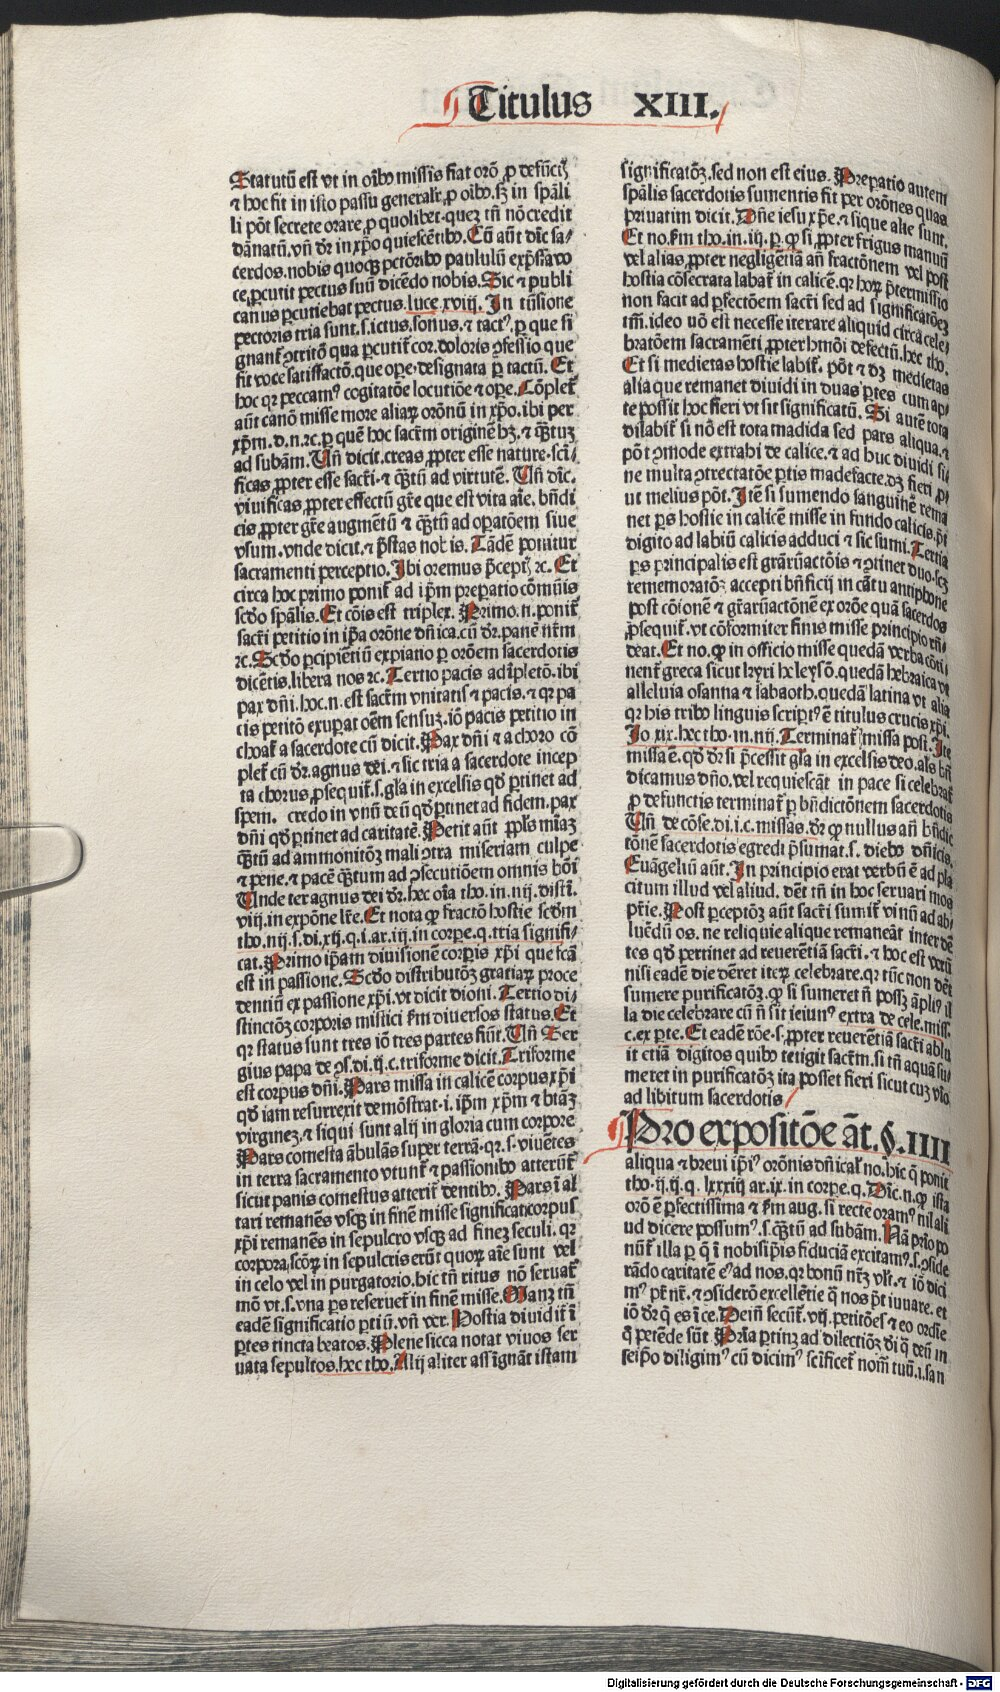 Titulus XIII.
Statutū est vt in oībꝰ missis fiat orō ꝓ defūctꝭ
⁊ hoc fit in isto passu generalr̄ ꝓ oībꝰ. sꝫ in spāli
li pōt secrete orare ꝓ quolibet. quez tn̄ nō credit
dānatū. vn̄ dr̄ in xp̄o quiescētibꝰ. Cū aūt dic̄ sa/
cerdos. nobis quoqꝫ pctōribꝰ paululū exp̄ssa vo
ce ꝑcutit pectus suū dicēdo nobis. Sic ⁊ publi
canus ꝑcutiebat pectus. luce. xviij. In tūsione
pectoris tria sunt. s. ictus, sonus, ⁊ tactꝰ. ꝑ que si
gnant̄ ꝯtritō qua ꝑcutit̄ cor. doloris ꝯfessio que
fit voce satisfactō. que ope. designata ꝑ tactū. Et
hoc qꝛ peccamꝰ cogitatōe locutiōe ⁊ ope. Cōplet̄
aūt canō misse more aliaꝝ orōnū in xp̄o. ibi per
xp̄m. d. n. ⁊c. ꝑ quē hoc sacr̄m originē hꝫ. ⁊ qꝫtuꝫ
ad subām. Vn̄ dicit. creas ꝓpter esse nature. scī
ficas ꝓpter esse sacr̄i. ⁊ qꝫtū ad virtutē. Vn̄ dic̄.
viuificas ꝓpter effectū gr̄e que est vita aīe. bn̄di
cis ꝓpter gr̄e augmētū ⁊ qꝫtū ad oꝑatōem siue
vsum. vnde dicit. ⁊ p̄stas nobis. Tādē ponitur
sacramenti perceptio. Ibi oremus p̄ceptꝭ ⁊c. Et
circa hoc primo ponit̄ ad ip̄m preparatio cōmūis
scd̄o spālis. Et cōis est triplex. Primo. n. ponit̄
sacr̄i petitio in ip̄a orōne dn̄ica. cū dr̄. panē nr̄m
⁊c. Scd̄o ꝑcipiētiū expiatio ꝑ orōem sacerdotis
dicētis. libera nos ⁊c. Tertio pacis adīpletō. ibi
pax dn̄i. hoc. n. est sacr̄m vnitatis ⁊ pacis. ⁊ qꝛ pa
cis petitō exuꝑat oēm sensuꝫ. iō pacis petitio in
choat̄ a sacerdote cū dicit. Pax dn̄i ⁊ a choro cō
plet̄ cū dr̄. agnus dei. ⁊ sic tria a sacerdote incep
ta chorus ꝓsequit̄. s. gl̄a in excelsis qd̄ ꝑtinet ad
spem. credo in vnū deū qd̄ ꝑtinet ad fidem. pax
dn̄i qd̄ ꝑtinet ad caritatē. Petit aūt ppl̄s mīaꝫ
qꝫtū ad ammonitōꝫ mali ꝯtra miseriam culpe
⁊ pene. ⁊ pacē qꝫtum ad ꝯsecutiōem omnis boī
Vnde ter agnus dei dr̄. hec oīa tho. in. iiij. distī.
viij. in expōne lr̄e. Et nota qꝙ fractō hostie scd̄m
tho. iiij. s. di. xij. q. i. ar. iij. in corpe. q. ttia signifi/
cat. Primo ip̄am diuisionē corꝑis xp̄i que fcā
est in passione. Scd̄o distributōꝫ gratiaꝝ proce
dentiū ex passione xp̄i. vt dicit dioni. Tertio di/
stinctōꝫ corporis mistici ẜm diuersos status. Et
qꝛ status sunt tres iō tres partes fiūt. Vn̄ Ser
gius papa de ꝯs. di. ij. c. triforme dicit. Triforme
est corpus dn̄i. Pars missa in calicē corpus xp̄i
qd̄ iam resurrexit demōstrat. i. ip̄m xp̄m ⁊ btāꝫ
virginez. ⁊ siqui sunt alij in gloria cum corpore
Pars comesta ābulās super terrā. qꝛ. s. viuētes
in terra sacramento vtunt̄ ⁊ passionibꝰ atterūt̄
sicut panis comestus atterit̄ dentibꝰ. Pars ī al
tari remanēs vsqꝫ in finē misse significat corpus
xp̄i remanēs in sepulcro vsqꝫ ad finez seculi. qꝛ
corpora scōꝝ in sepulcris erūt quoꝝ aīe sunt vel
in celo vel in purgatorio. hic tn̄ ritus nō seruat̄
mō vt. s. vna ꝑs reseruet̄ in finē misse. Manꝫ tn̄
eadē significatio ꝑtiū. vn̄ ver. Hostia diuidit̄ ī
ꝑtes tincta beatos. Plene sicca notat viuos ser
uata sepultos. hec tho. Alij aliter assignāt istam
significatōꝫ. sed non est eius. Preꝑatio autem
spālis sacerdotis sumentis fit per orōnes quas
priuatim dicit. Dn̄e iesu xp̄e. ⁊ sique alie sunt.
Et no. ẜm tho. in. iij. p. qꝙ si ꝓpter frigus manuū
vel alias ꝓpter negligētiā an̄ fractōnem vel post
hostia cōsecrata labat̄ in calicē. qꝛ hoꝝ p̄termissio
non facit ad ꝑfectōem sacr̄i sed ad significatōeꝫ
tm̄. ideo nō est necesse iterare aliquid circa cele/
bratōem sacramēti ꝓpter hmōi defectū. hec tho.
Et si medietas hostie labit̄. pōt ⁊ dꝫ medietas
alia que remanet diuidi in duas ꝑtes cum ap/
te possit hoc fieri vt sit significatū. Si autē tota
dilabit̄ si nō est tota madida sed pars aliqua. ⁊
pōt ꝯmode extrahi de calice. ⁊ ad huc diuidi si/
ne multa ꝯtrectatōe ꝑtis madefacte. dꝫ fieri ꝓ/
ut melius pōt. Itē si sumendo sanguinē rema
net ꝑs hostie in calicē misse in fundo calicis. pt̄
digito ad labiū calicis adduci ⁊ sic sumi. Tertia
ꝑs principalis est grāꝝactōis ⁊ ꝯtinet duo. scꝫ
rememoratōꝫ accepti bn̄ficij in cātu antiphone
post cōionē ⁊ gr̄arūactōnē ex orōe quā sacerdos
ꝓsequit̄. vt cōformiter finis misse principio rn̄/
deat. Et no. qꝙ in officio misse quedā verba cōti/
nent̄ greca sicut kyri heleysō. quedā hebraica vt
alleluia osanna ⁊ sabaoth. quedā latina vt alia
qꝛ his tribꝰ linguis scriptꝰ ē titulus crucis xp̄i.
Io xix. hec tho. in. iiij. Terminat̄ missa posī. Ite
missa ē. qd̄ dr̄ si p̄cessit gl̄a in excelsis deo. als bn̄
dicamus dn̄o. vel requiescāt in pace si celebrat̄
ꝓ defunctis terminat̄ ꝑ bn̄dictōnem sacerdotis
Vn̄ de cōse. di. i. c. missas. dr̄ qꝙ nullus an̄ bn̄dic
tōnē sacerdotis egredi p̄sumat. s. diebꝰ dn̄icis.
Euāgeliū aūt. In principio erat verbū ē ad pla
citum illud vel aliud. dēt tn̄ in hoc seruari mos
pr̄ie. Post ꝑceptōꝫ aūt sacr̄i sumit̄ vinū ad ab/
luēdū os. ne reliquie alique remaneāt inter dē
tes qd̄ pertinet ad reuerētiā sacr̄i. ⁊ hoc est verū
nisi eadē die dēret iteꝝ celebrare. qꝛ tūc non dēt
sumere purificatōꝫ. qꝙ si sumeret n̄ possꝫ āpliꝰ il
la die celebrare cū n̄ sit ieiunꝰ extra de cele. miss.
c. ex ꝑte. Et eadē rōe. s. ꝓpter reuerētiā sacr̄i ablu
it etiā digitos quibꝰ tetigit sacr̄m. si tn̄ aquā su/
meret in purificatōꝫ ita posset fieri sicut cuꝫ vīo
ad libitum sacerdotis
Pro expositōe āt. §. IIII
aliqua ⁊ breui ip̄iꝰ orōnis dn̄ical̄ no. hic q̄ ponit
tho. ij. ij. q. lxxxiij ar. ix. in corpe. q. Dic̄. n. qꝙ ista
orō ē ꝑfectissima ⁊ ẜm aug. si recte oramꝰ nil ali
ud dicere possumꝰ. s. qꝫtū ad subām. Nā prīo po
nūt̄ illa ꝑ q̄ ī nobisip̄is fiduciā excitamꝰ. s. ꝯside
rādo caritatē eꝰ ad nos. qꝛ bonū nr̄ꝫ vlt̄. ⁊ iō dici
mꝰ pr̄ nr̄. ⁊ ꝯsiderō excellētie q̄ nos pt̄ iuuare. et
iō dr̄ q̄ es ī ce. Dein̄ secūt̄. vij. petitōes ⁊ eo ordīe
q̄ petēde sūt. Prīa ꝑtinꝫ ad dilectōꝫ di q̄ deū in
seip̄o diligimꝰ cū dicimꝰ sc̄ificet̄ nom̄ tuū. i. san
Digitalisierung gefördert durch die Deutsche Forschungsgemeinschaft - DFG